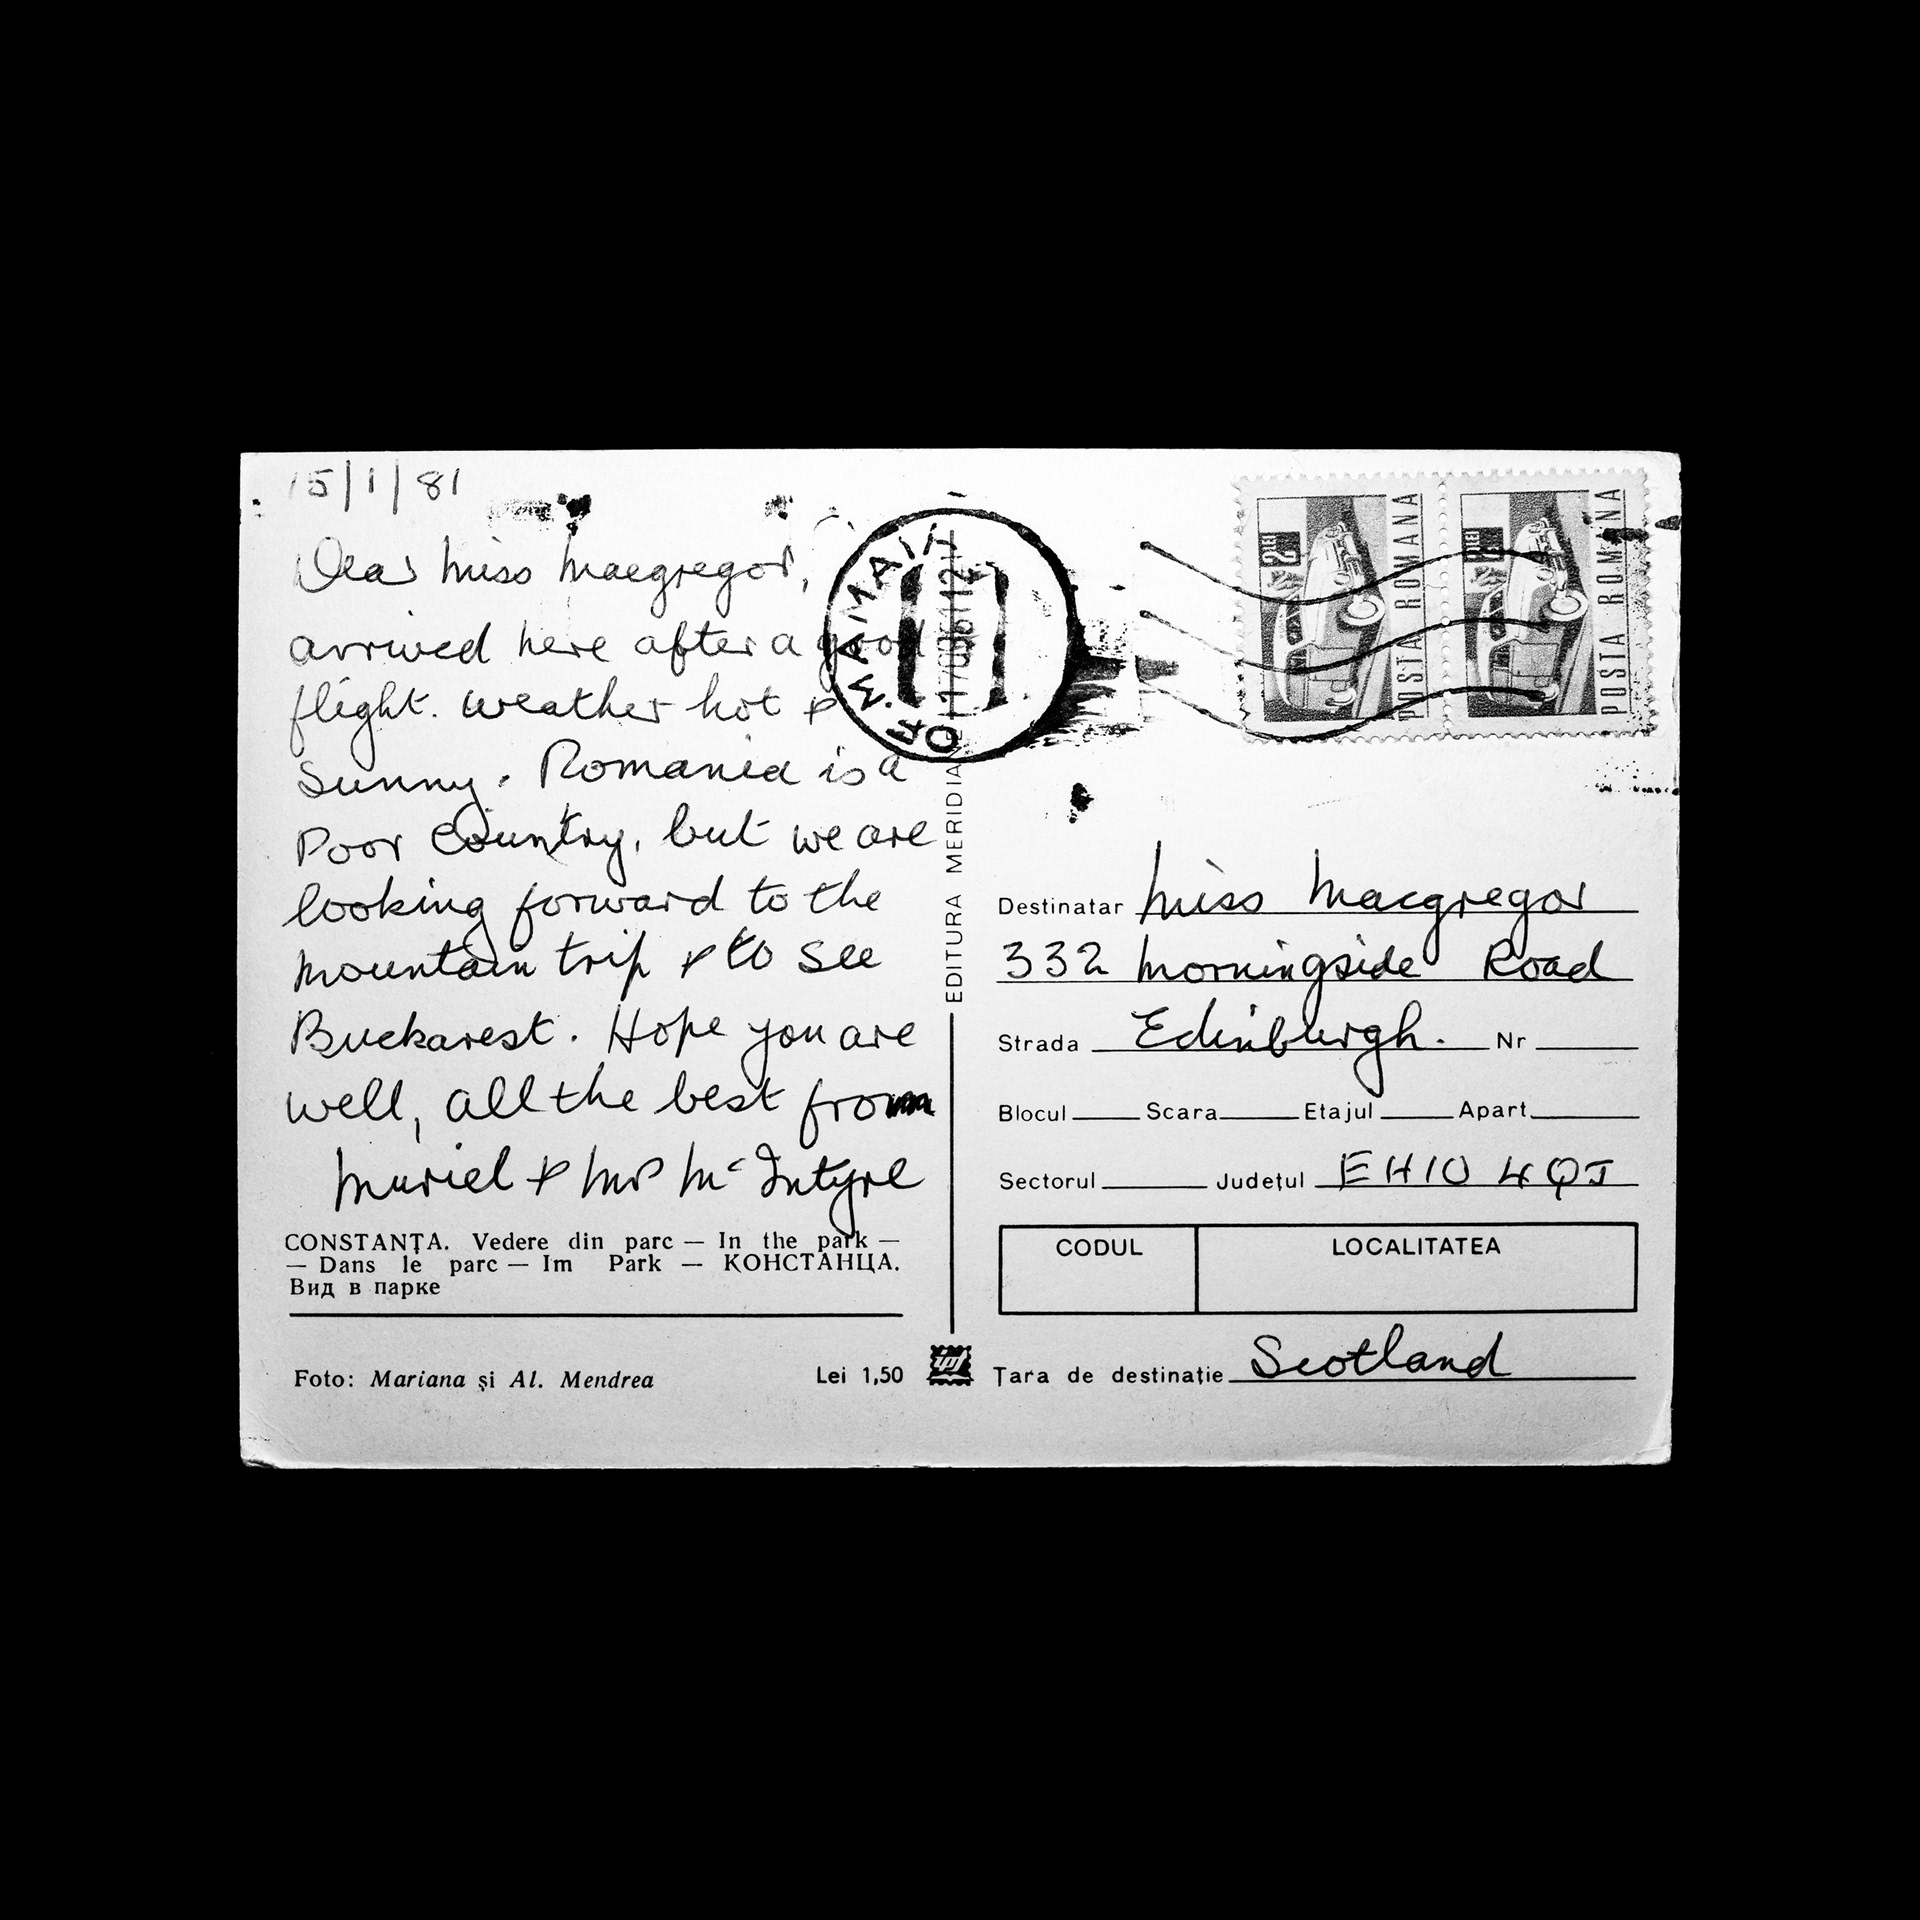 15/1/81
Dear Miss Macgregor,
arrived here after a good
flight. Weather hot &
sunny. Romania is a
poor country, but we are
looking forward to the
mountain trip & to see
Buckarest. Hope you are
well, all the best from
Muriel & Mrs McIntyre
CONSTANȚA. Vedere din parc — In the park —
— Dans le parc — Im Park — КОНСТАНЦА.
Вид в парке
Foto: Mariana și Al. Mendrea
Lei 1,50
EDITURA MERIDIANE
MAMAIA
2 LEI
POSTA ROMANA
2 LEI
POSTA ROMANA
Destinatar Miss Macgregor
332 Morningside Road
Strada Edinburgh. Nr
Blocul Scara Etajul Apart.
Sectorul Județul EH10 4QJ
CODUL LOCALITATEA
Țara de destinație Scotland